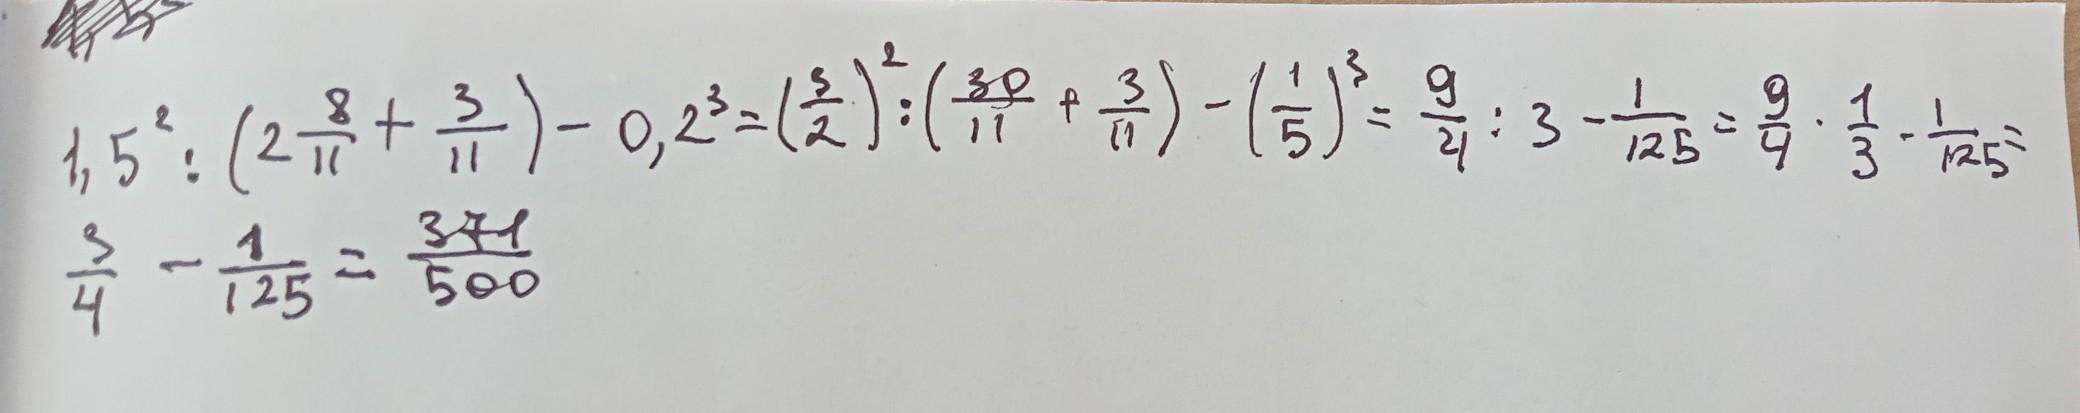 1,5² : (2 8/11 + 3/11) - 0,2³ = (3/2)² : (30/11 + 3/11) - (1/5)³ = 9/4 : 3 - 1/125 = 9/4 · 1/3 - 1/125 =
3/4 - 1/125 = 371/500